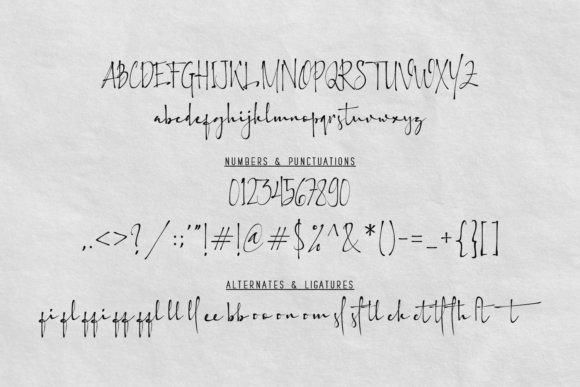 ABCDEFGHIJKLMNOPQRSTUVWXYZ
abcdefghijklmnopqrstuvwxyz
NUMBERS & PUNCTUATIONS
01234567890
,.<>?/:;'"!#!@#$%^&*()-=_+{}[]
ALTERNATES & LIGATURES
fi fl ffi ff ffl ll ll ee bb oo on om sl sf tl ck ct tf th